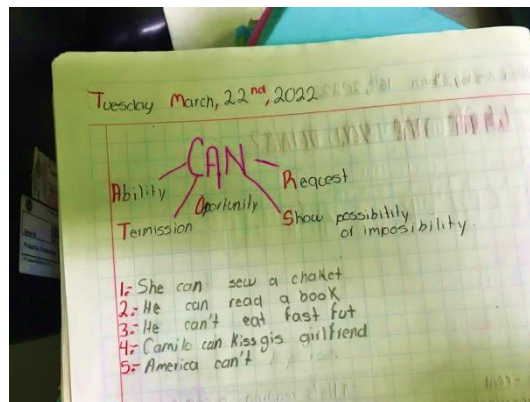 Tuesday March, 22nd, 2022
CAN
Ability
Request
Oportunity
Termission
Show possibitily
or imposibility
1.- She can sew a chaket
2.- He can read a book
3.- He can't eat fast fut
4.- Camilo can kiss gis girlfriend
5.- America can't